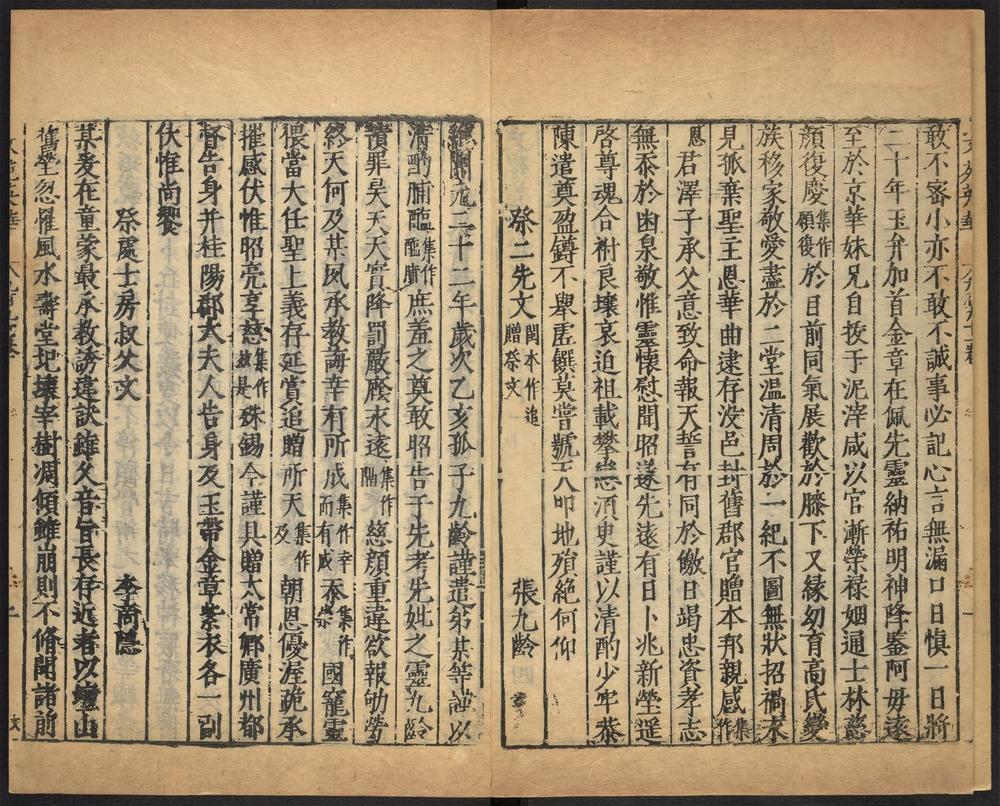 敢不密小亦不敢不誠事必記心言無漏口日慎一日將
二十年玉弁加首金章在佩先靈納祐明神降鑒阿母遠
至於京華妹兄自拔于泥滓咸以官漸榮祿姻通士林慈
顔復慶集作顧復於目前同氣展歡於膝下又縁幼育高氏變
族移家敬愛盡於二堂温清周於一紀不圖無狀招禍未
見孤棄聖主恩華曲逮存没邑封舊郡官贈本邦親感集作
恩君澤子承父意致命報天誓有同於皦日竭忠資孝志
無忝於幽泉敬惟靈懷慰聞昭遂先遠有日卜兆新塋遥
啓尊魂合祔良壤哀迫祖載攀戀須臾謹以清酌少牢恭
陳遣奠盈罇不舉虚饌莫嘗號天叩地殞絶何仰
祭二先文閩本作追贈祭文 張九齡
二十二年歲次乙亥孤子九齡謹遣弟某等謹以
清酌脯醢集作醢脯庶羞之奠敢昭告于先考先妣之靈九齡
積罪昊天天實降罰嚴蔭永遠集作隔慈顔重違欲報劬勞
終天何及某夙承教誨幸有所成集作幸而有成忝集作崇國寵靈
猥當大任聖上義存延賞追贈所天集作及朝恩優渥跪承
摧感伏惟昭亮享慈集作是殊錫今謹具贈太常卿廣州都
督告身并桂陽郡太夫人告身及玉帶金章紫衣各一副
伏惟尚饗
祭處士房叔父文 李商隱
某爰在童蒙最承教誘違訣雖久音旨長存近者以壇山
舊塋忽罹風水壽堂圮壞宰樹凋傾雖崩則不脩聞諸前